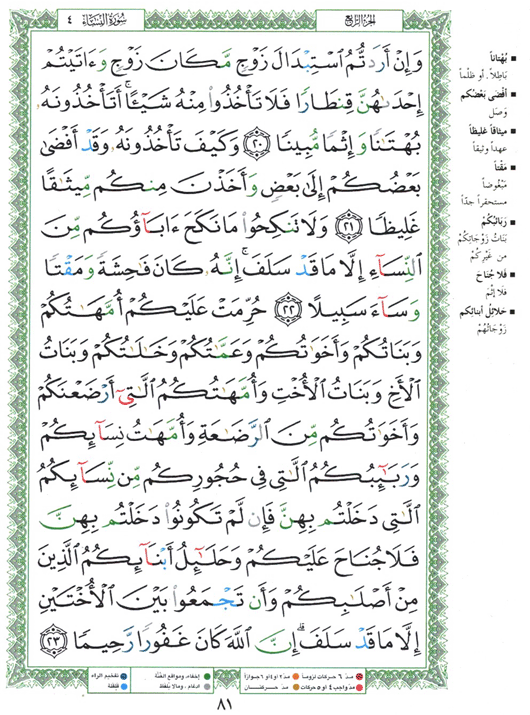 الجزء الرابع
سورة النساء ٤
وَإِنْ أَرَدتُّمُ ٱسْتِبْدَالَ زَوْجٍ مَّكَانَ زَوْجٍ وَءَاتَيْتُمْ
إِحْدَىٰهُنَّ قِنطَارًا فَلَا تَأْخُذُوا۟ مِنْهُ شَيْـًٔا ۚ أَتَأْخُذُونَهُۥ
بُهْتَٰنًا وَإِثْمًا مُّبِينًا ٢٠ وَكَيْفَ تَأْخُذُونَهُۥ وَقَدْ أَفْضَىٰ
بَعْضُكُمْ إِلَىٰ بَعْضٍ وَأَخَذْنَ مِنكُم مِّيثَٰقًا
غَلِيظًا ٢١ وَلَا تَنكِحُوا۟ مَا نَكَحَ ءَابَآؤُكُم مِّنَ
ٱلنِّسَآءِ إِلَّا مَا قَدْ سَلَفَ ۚ إِنَّهُۥ كَانَ فَٰحِشَةً وَمَقْتًا
وَسَآءَ سَبِيلًا ٢٢ حُرِّمَتْ عَلَيْكُمْ أُمَّهَٰتُكُمْ
وَبَنَاتُكُمْ وَأَخَوَٰتُكُمْ وَعَمَّٰتُكُمْ وَخَٰلَٰتُكُمْ وَبَنَاتُ
ٱلْأَخِ وَبَنَاتُ ٱلْأُخْتِ وَأُمَّهَٰتُكُمُ ٱلَّٰتِىٓ أَرْضَعْنَكُمْ
وَأَخَوَٰتُكُم مِّنَ ٱلرَّضَٰعَةِ وَأُمَّهَٰتُ نِسَآئِكُمْ
وَرَبَٰٓئِبُكُمُ ٱلَّٰتِى فِى حُجُورِكُم مِّن نِّسَآئِكُمُ
ٱلَّٰتِى دَخَلْتُم بِهِنَّ فَإِن لَّمْ تَكُونُوا۟ دَخَلْتُم بِهِنَّ
فَلَا جُنَاحَ عَلَيْكُمْ وَحَلَٰٓئِلُ أَبْنَآئِكُمُ ٱلَّذِينَ
مِنْ أَصْلَٰبِكُمْ وَأَن تَجْمَعُوا۟ بَيْنَ ٱلْأُخْتَيْنِ
إِلَّا مَا قَدْ سَلَفَ ۗ إِنَّ ٱللَّهَ كَانَ غَفُورًا رَّحِيمًا ٢٣
■ بُهْتاناً
باطلاً، أو ظلماً
■ أفضى بعضكم
وَصَل
■ ميثاقاً غليظاً
عهداً وثيقاً
■ مقتاً
مبغوضاً
مستحقراً جدّاً
■ ربائبكم
بنات زوجاتكم
من غيركم
■ فلا جناح
فلا إثم
■ حلائل أبنائكم
زوجاتهم
مدّ ٦ حركات لزوماً
مدّ ٢ أو ٤ أو ٦ جوازاً
إخفاء، ومواقع الغنّة
تفخيم الراء
مدّ واجب ٤ أو ٥ حركات
مدّ حركتان
إدغام، وما لا يلفظ
قلقلة
٨١